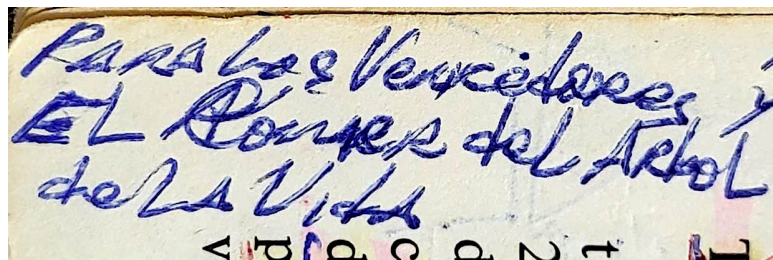 Para Los Vencedores y
EL Comer del Arbol
de La Vida